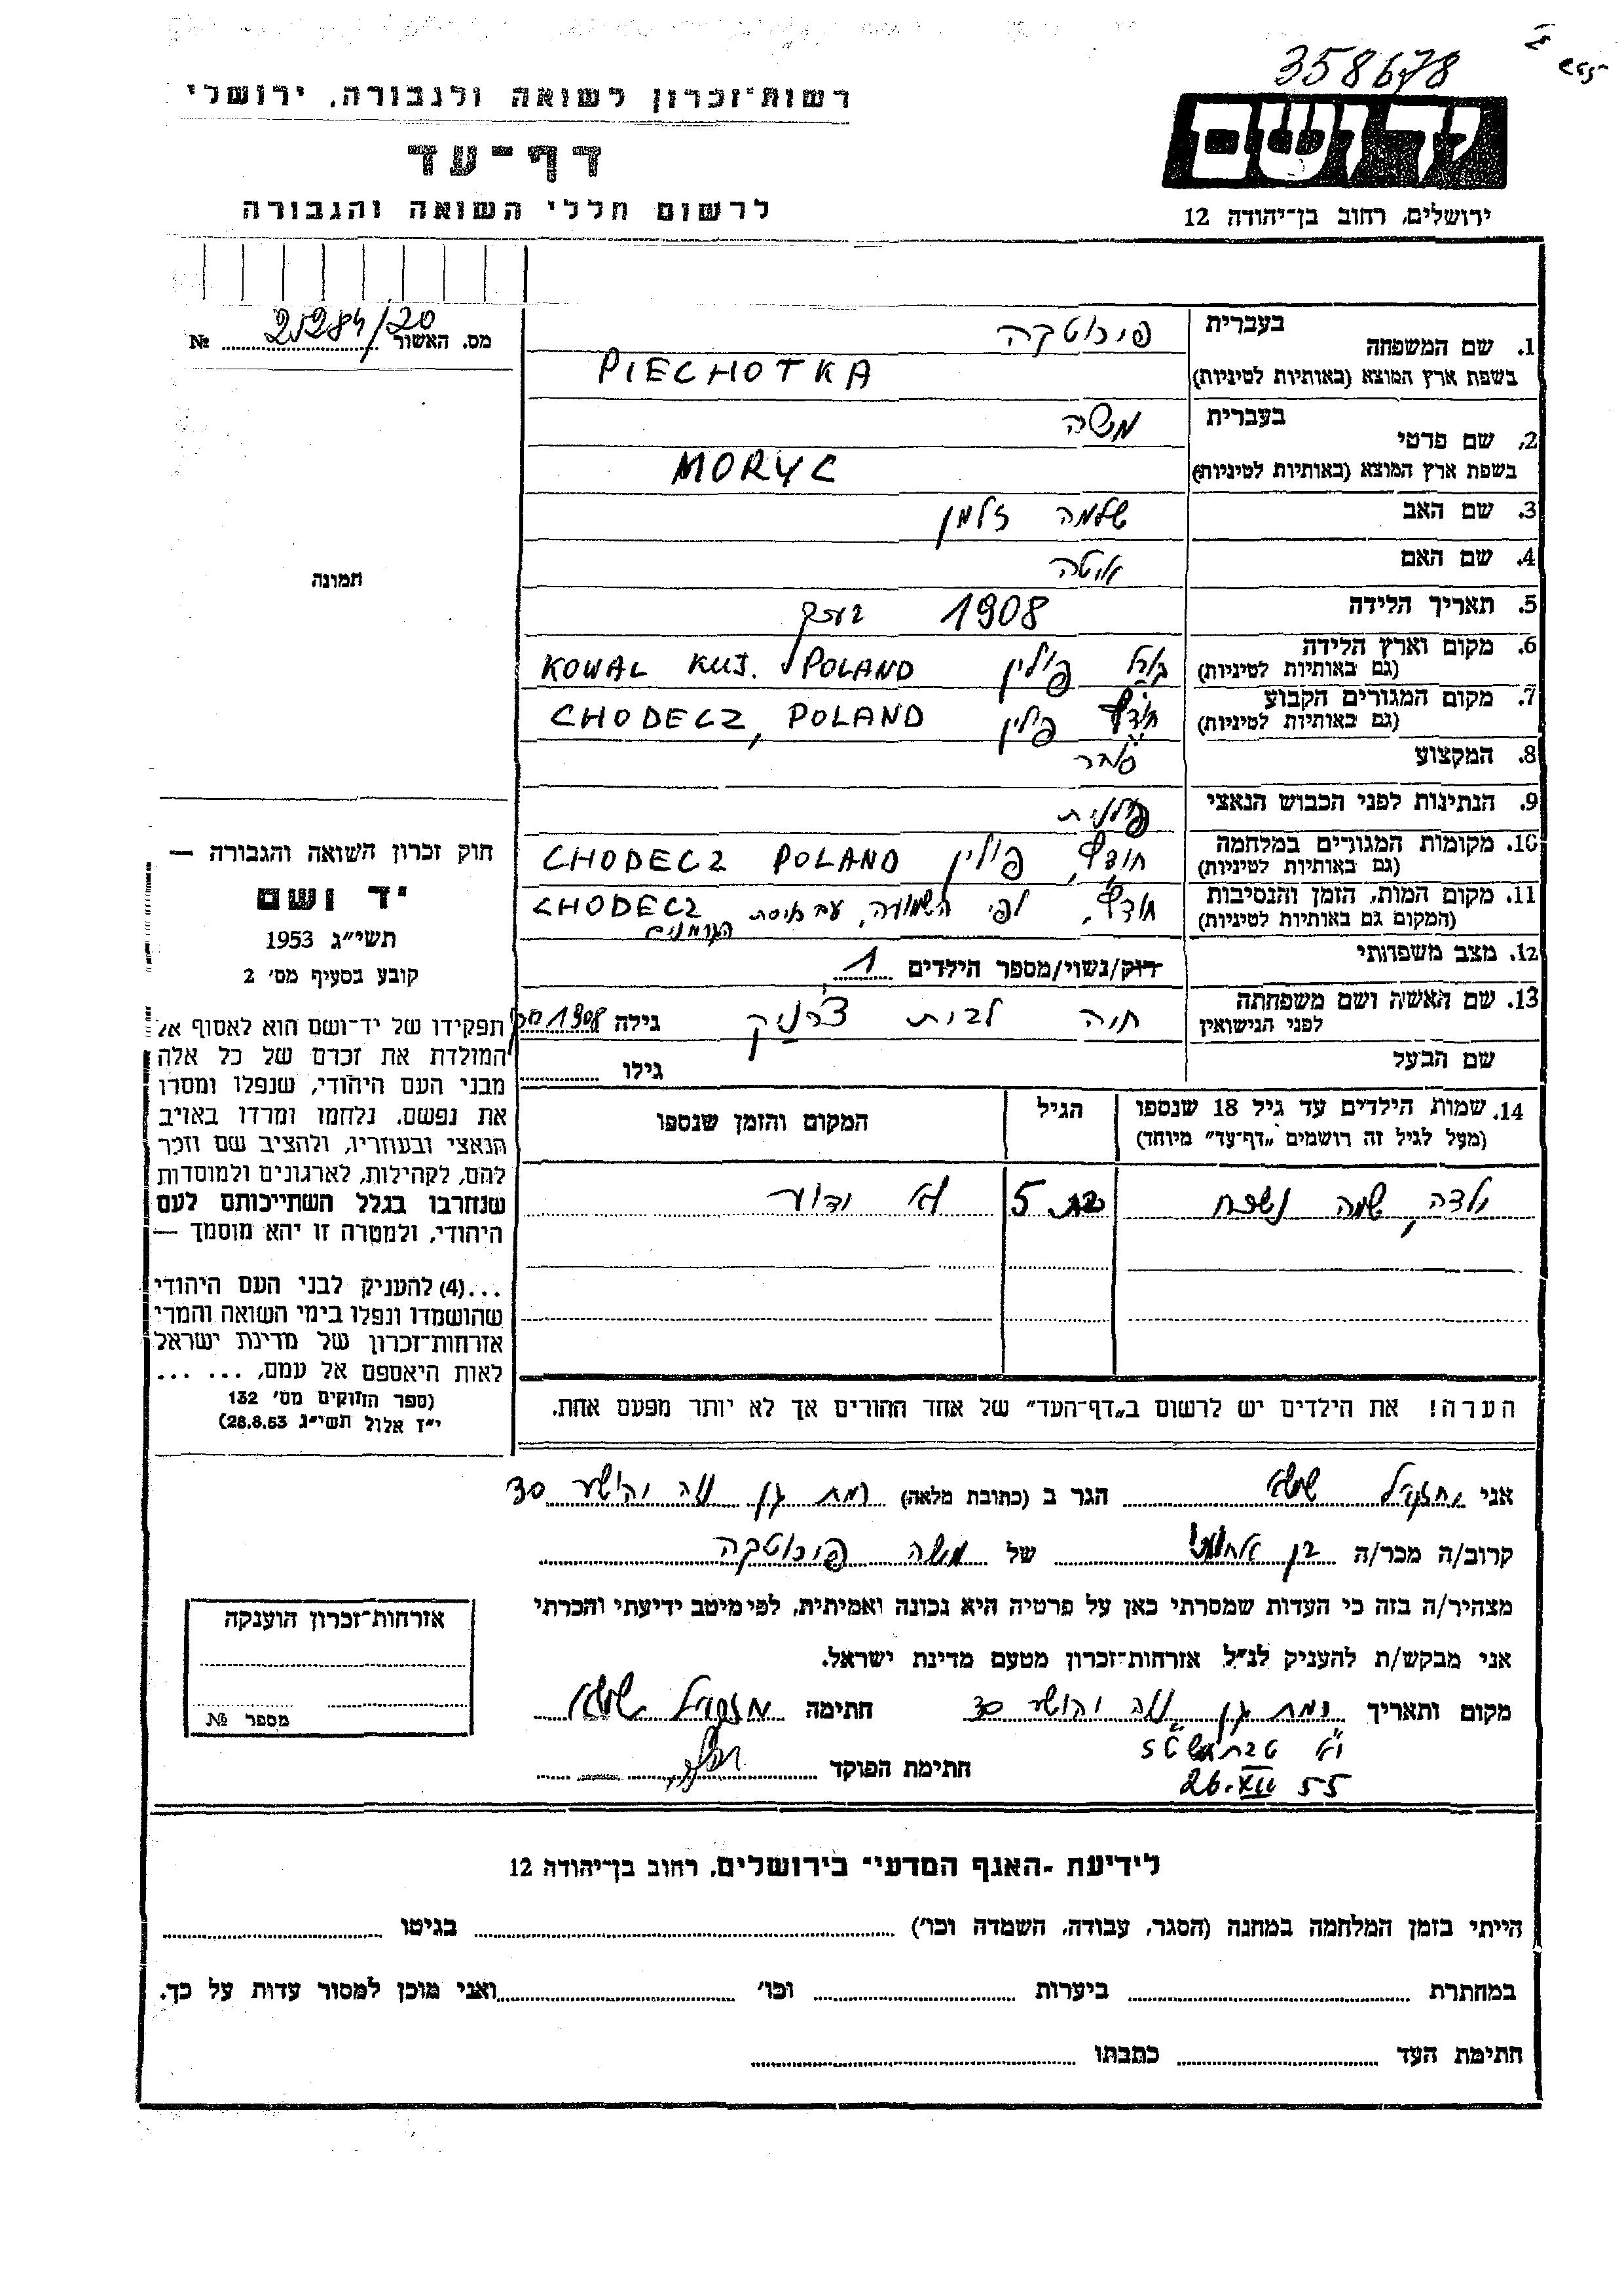 358678
רשות־זכרון לשואה ולגבורה, ירושלי
יד ושם
דף־עד
ירושלים, רחוב בן־יהודה 12
לרשום חללי השואה והגבורה
מס. האשור 25284/20 №
תמונה
1. שם המשפחה
בעברית פיכוטקה
בשפת ארץ המוצא (באותיות לטיניות) PIECHOTKA
2. שם פרטי
בעברית משה
בשפת ארץ המוצא (באותיות לטיניות) MORYC
3. שם האב שלמה זלמן
4. שם האם איטה
5. תאריך הלידה 1908 בערך
6. מקום וארץ הלידה
(גם באותיות לטיניות) פולין KOWAL KUJ. POLAND
7. מקום המגורים הקבוע
(גם באותיות לטיניות) פולין CHODECZ, POLAND
8. המקצוע סוחר
9. הנתינות לפני הכבוש הנאצי פולנית
10. מקומות המגורים במלחמה
(גם באותיות לטיניות) פולין CHODECZ POLAND
11. מקום המות, הזמן והנסיבות
(המקום גם באותיות לטיניות) לפי השמועה, CHODECZ
הגרמנים
12. מצב משפחתי רוק/נשוי/מספר הילדים 1
13. שם האשה ושם משפחתה
לפני הנישואין חיה לבית גילה 1908
שם הבעל גילו
14. שמות הילדים עד גיל 18 שנספו
(מעל לגיל זה רושמים „דף־עד” מיוחד)
הגיל
המקום והזמן שנספו
ילדה, שמה נשכח בת 5 לא ידוע
הערה! את הילדים יש לרשום ב„דף־העד” של אחד ההורים אך לא יותר מפעם אחת.
חוק זכרון השואה והגבורה —
יד ושם
תשי״ג 1953
קובע בסעיף מס׳ 2
תפקידו של יד־ושם הוא לאסוף אל
המולדת את זכרם של כל אלה
מבני העם היהודי, שנפלו ומסרו
את נפשם, נלחמו ומרדו באויב
הנאצי ובעוזריו, ולהציב שם וזכר
להם, לקהילות, לארגונים ולמוסדות
שנחרבו בגלל השתייכותם לעם
היהודי, ולמטרה זו יהא מוסמך —
...(4) להעניק לבני העם היהודי
שהושמדו ונפלו בימי השואה והמרי
אזרחות־זכרון של מדינת ישראל
לאות היאספם אל עמם, ... ...
(ספר החוקים מס׳ 132
י״ז אלול תשי״ג 28.8.53)
אני יחזקאל הגר ב (כתובת מלאה) רמת גן נוה יהושע 30
קרוב/ה מכר/ה בן של משה פיכוטקה
מצהיר/ה בזה כי העדות שמסרתי כאן על פרטיה היא נכונה ואמיתית, לפי מיטב ידיעתי והכרתי
אני מבקש/ת להעניק לנ״ל אזרחות־זכרון מטעם מדינת ישראל.
מקום ותאריך רמת גן נוה יהושע 30 חתימה יחזקאל
26.XII 55
חתימת הפוקד
אזרחות־זכרון הוענקה
מספר №
לידיעת ״האגף המדעי״ בירושלים, רחוב בן־יהודה 12
הייתי בזמן המלחמה במחנה (הסגר, עבודה, השמדה וכו׳) בגיטו
במחתרת ביערות וכו׳ ואני מוכן למסור עדות על כך.
חתימת העד כתבתו